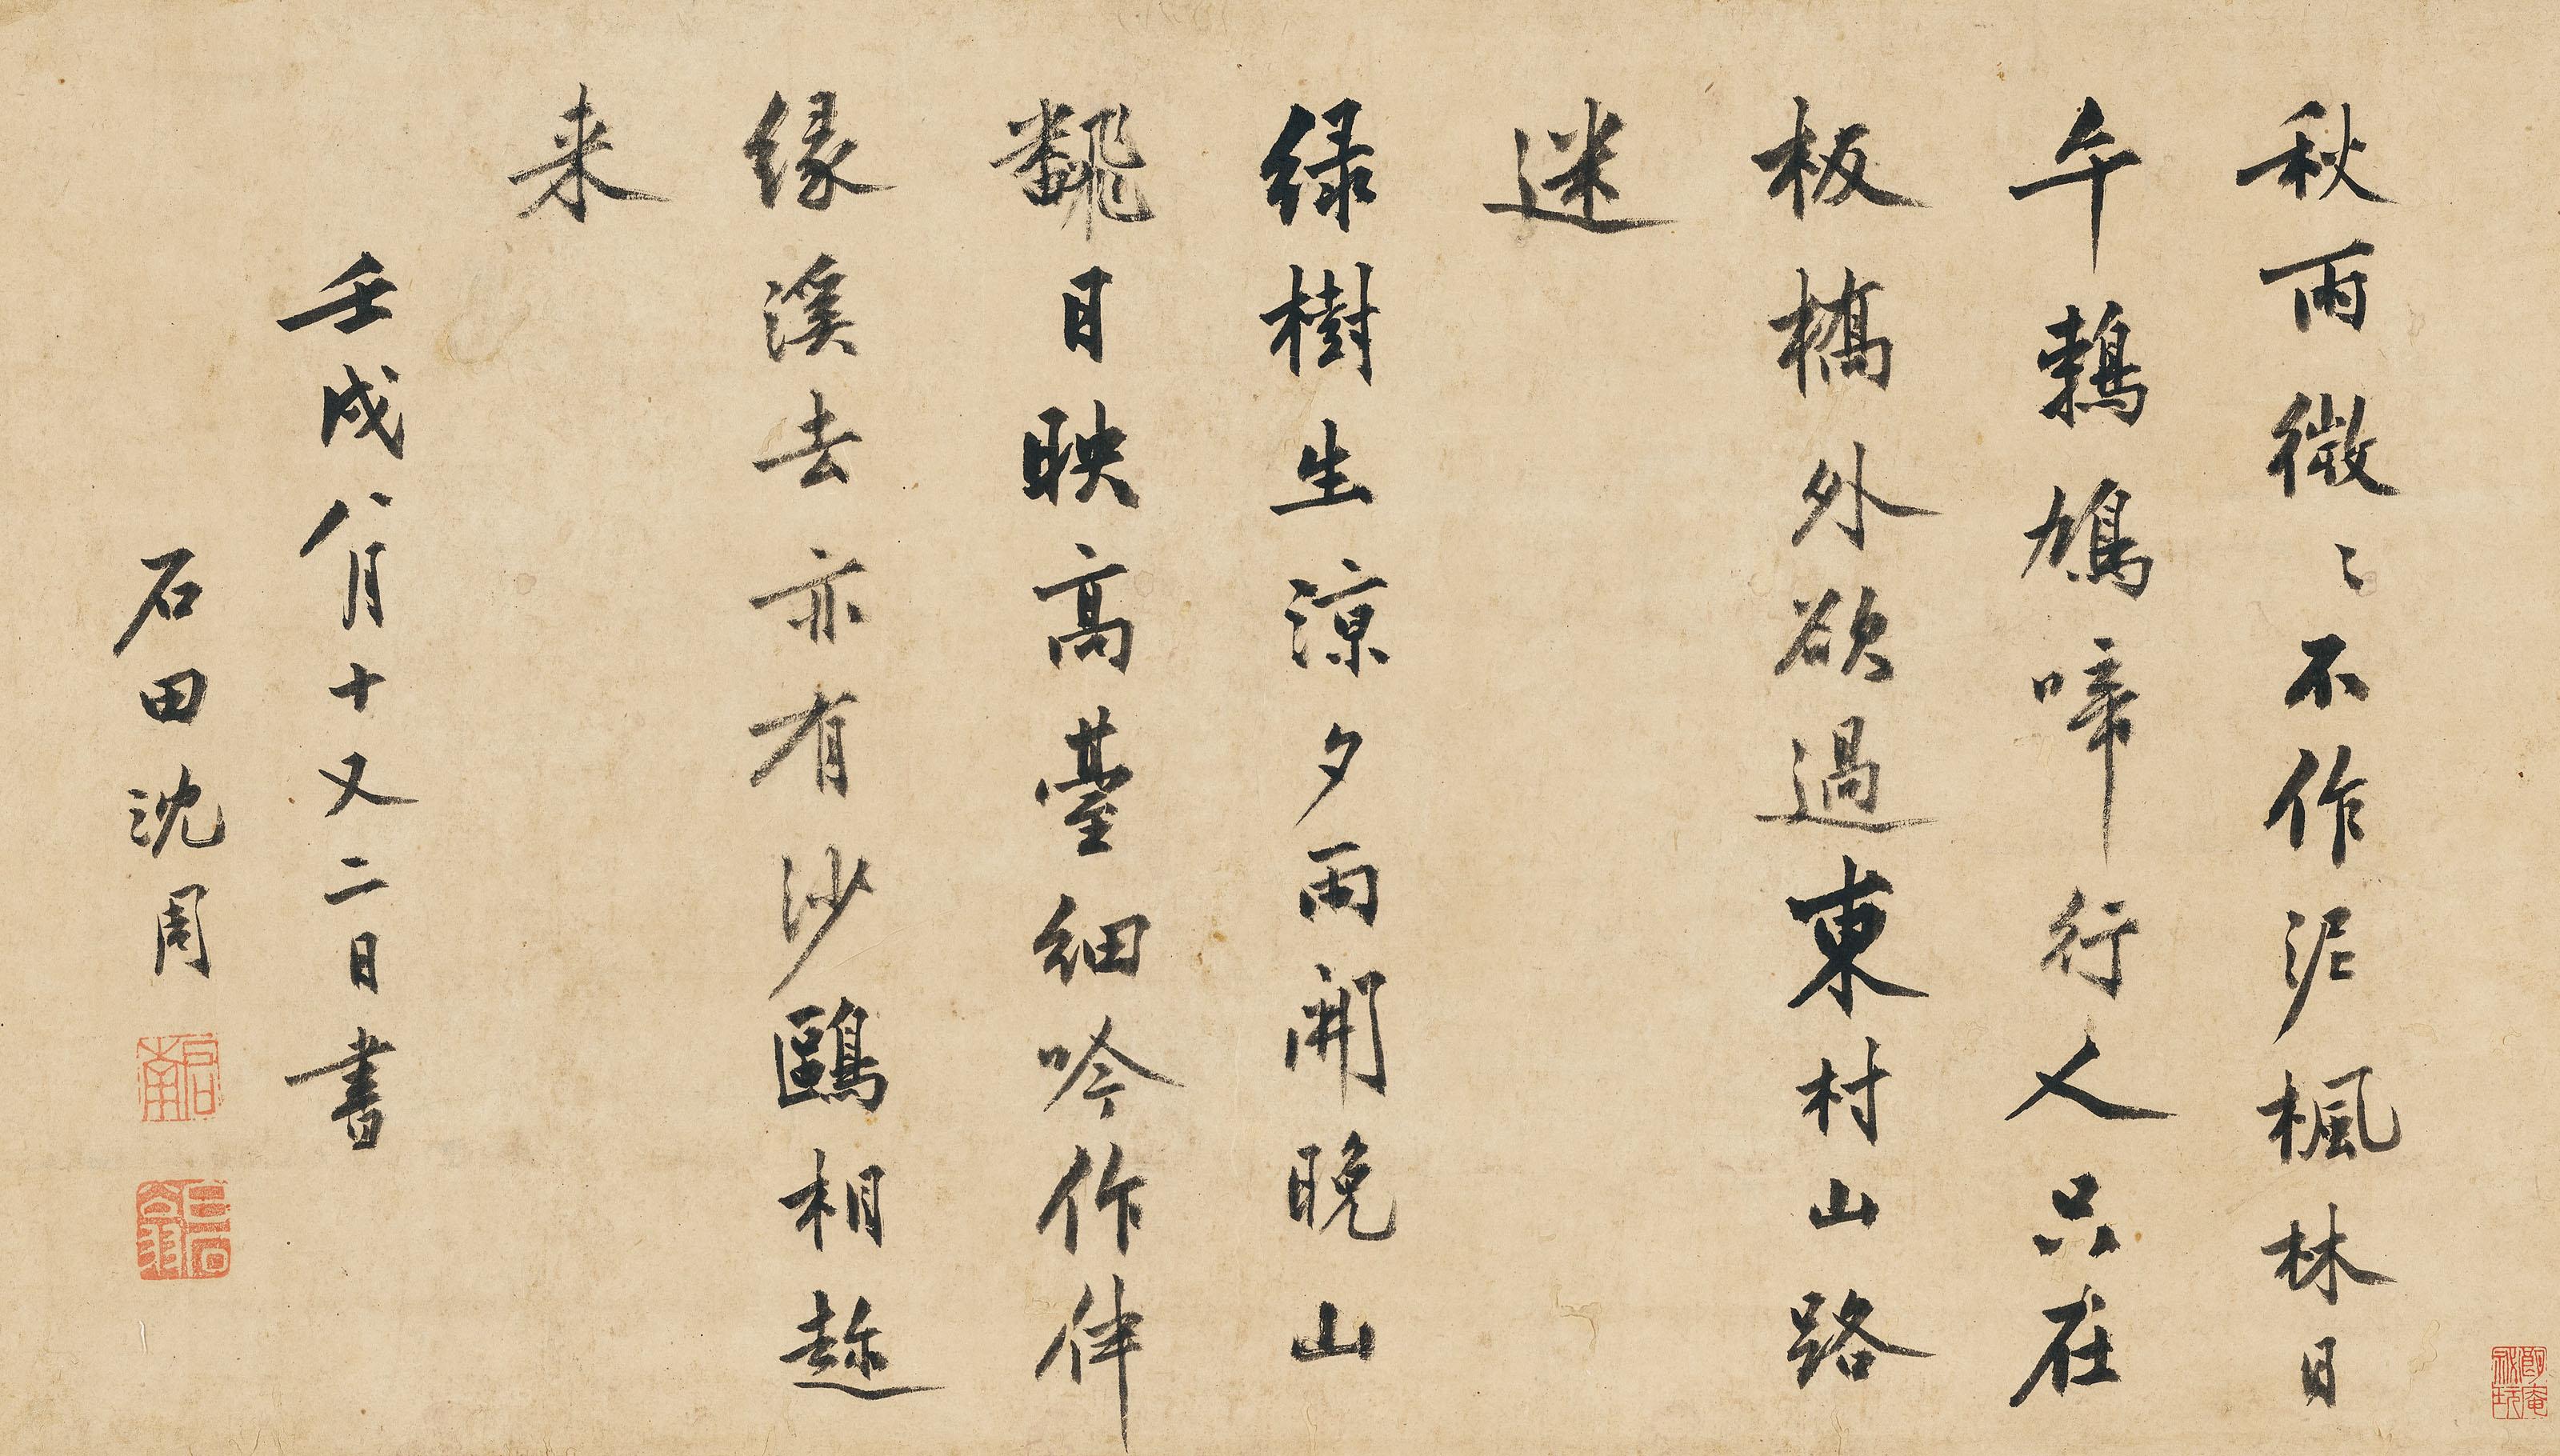 秋雨微〻不作泥楓林日
午鷞鳩啼行人只在
板橋外欲過東村山路
迷
緑樹生涼夕雨開晚山
飜日映高臺細吟作伴
縁溪去亦有沙鷗相趂
来
壬戌八月十又二日書
石田沈周
啟南
石田